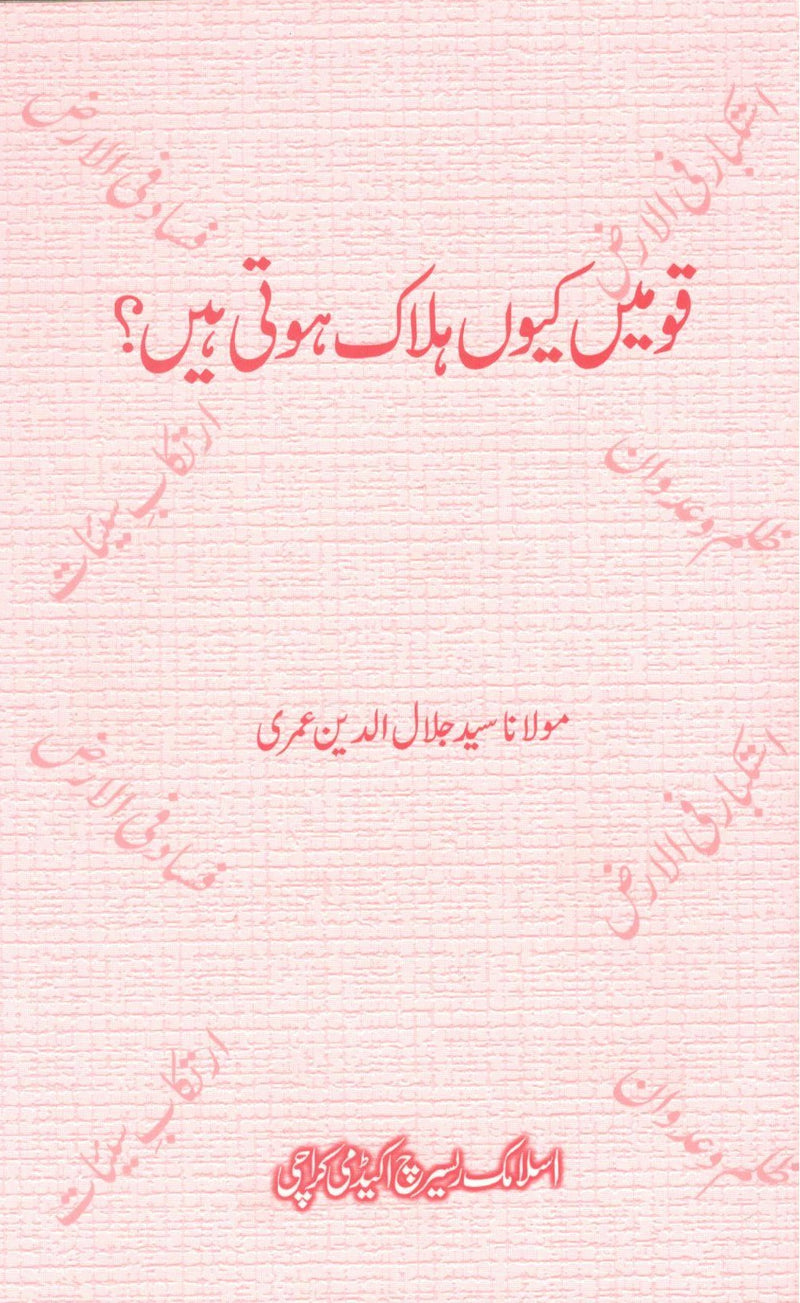 استکبار فی الارض
فساد فی الارض
قومیں کیوں ہلاک ہوتی ہیں؟
ظلم و عدوان
ارتکابِ سیئات
مولانا سید جلال الدین عمری
استکبار فی الارض
فساد فی الارض
ظلم و عدوان
ارتکابِ سیئات
اسلامک ریسرچ اکیڈمی کراچی